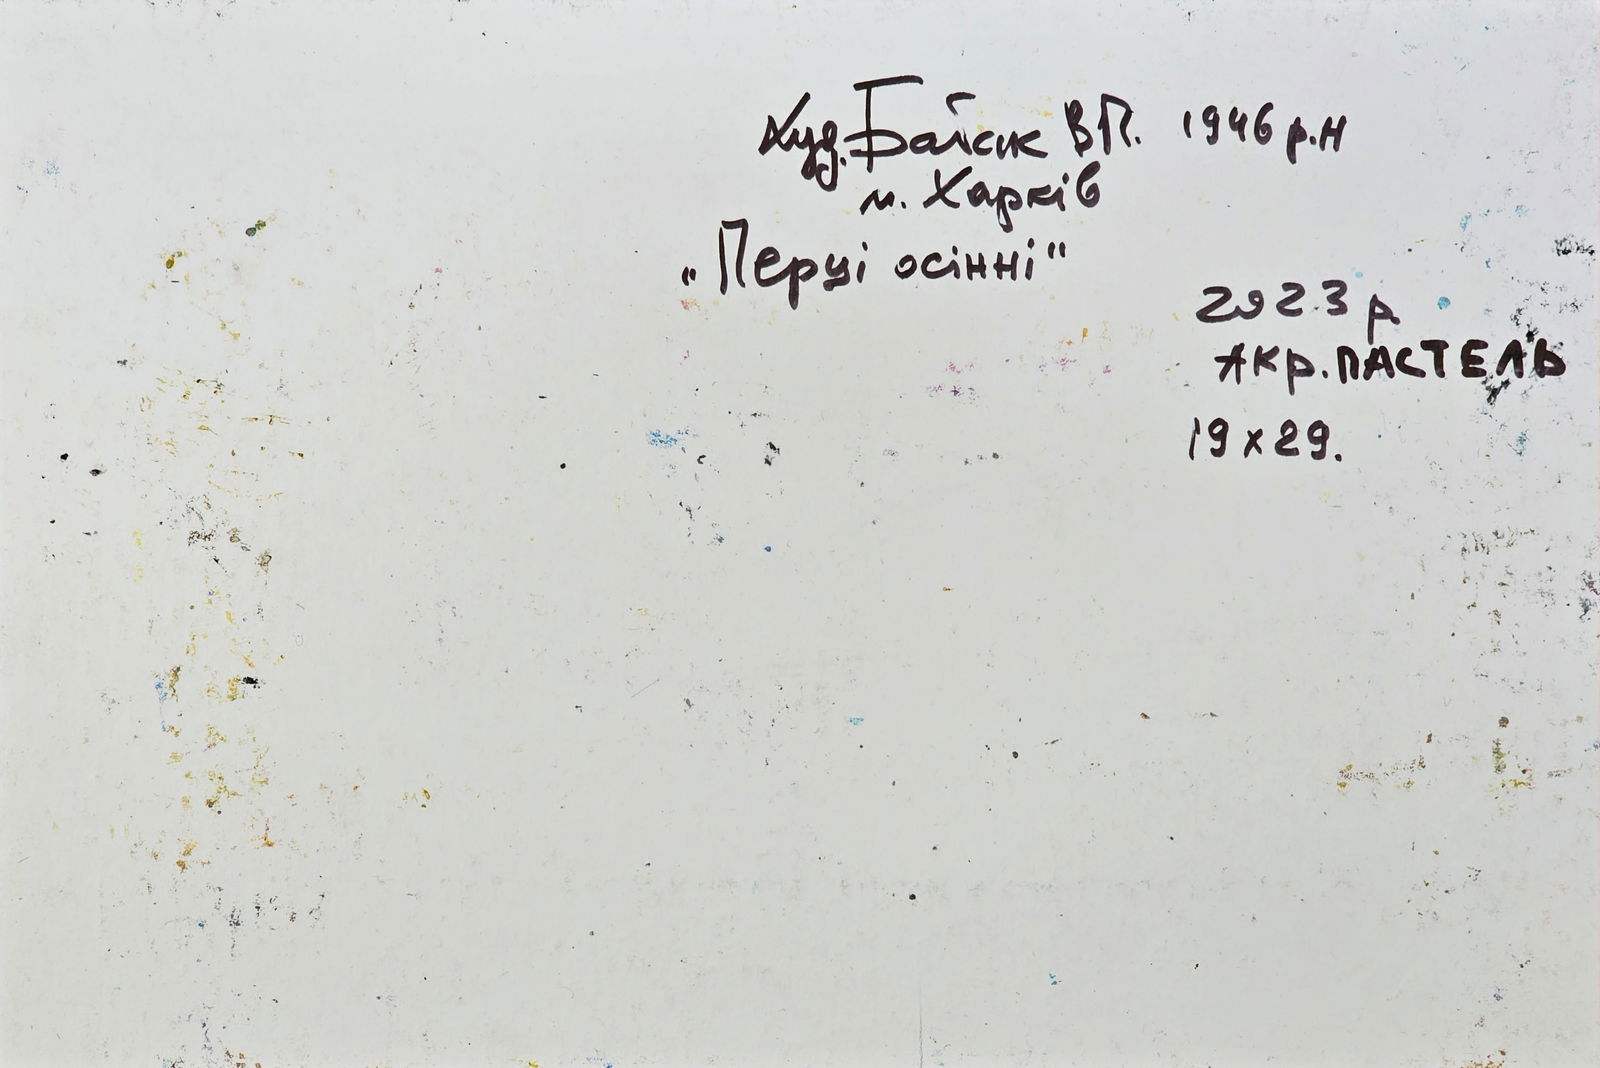 Худ. Байсик В П. 1946 р.н
м. Харків
"Перці осінні"
2023 р.
Акр. ПАСТЕЛЬ
19 х 29.